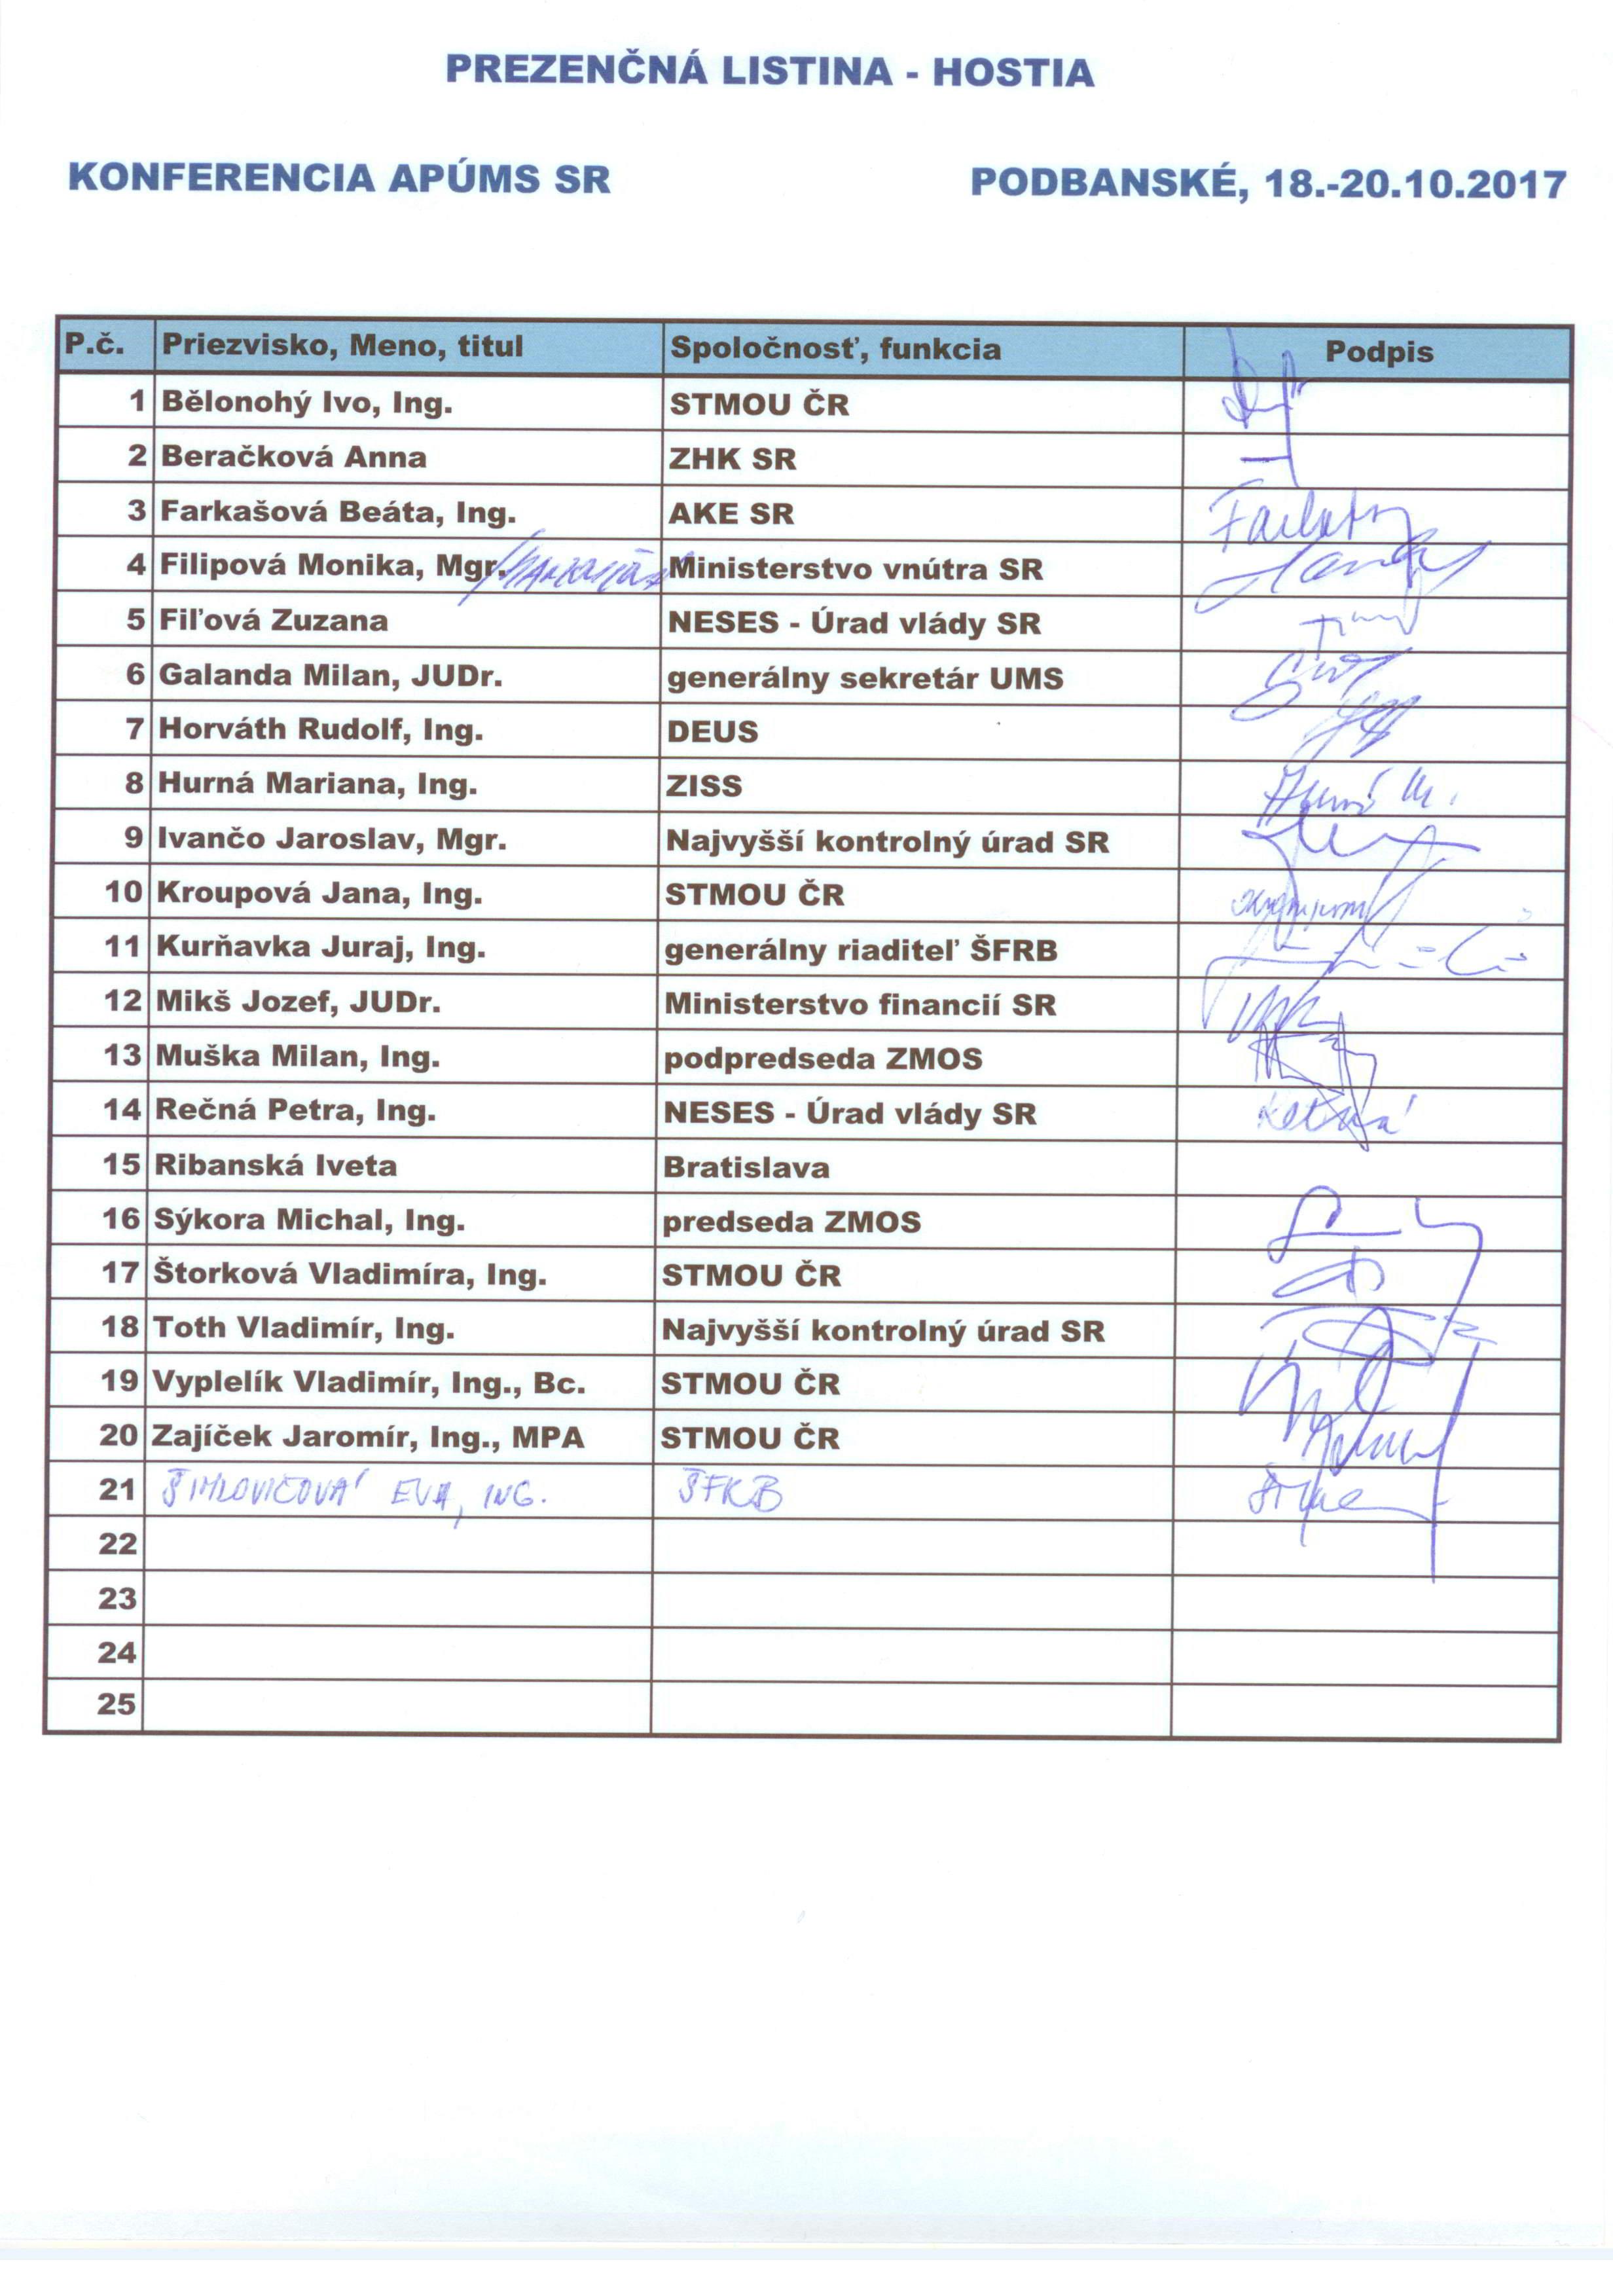 PREZENČNÁ LISTINA - HOSTIA
KONFERENCIA APÚMS SR PODBANSKÉ, 18.-20.10.2017
P.č. Priezvisko, Meno, titul Spoločnosť, funkcia Podpis
1 Bělonohý Ivo, Ing. STMOU ČR
2 Beračková Anna ZHK SR
3 Farkašová Beáta, Ing. AKE SR
4 Filipová Monika, Mgr. Ministerstvo vnútra SR
5 Fiľová Zuzana NESES - Úrad vlády SR
6 Galanda Milan, JUDr. generálny sekretár UMS
7 Horváth Rudolf, Ing. DEUS
8 Hurná Mariana, Ing. ZISS
9 Ivančo Jaroslav, Mgr. Najvyšší kontrolný úrad SR
10 Kroupová Jana, Ing. STMOU ČR
11 Kurňavka Juraj, Ing. generálny riaditeľ ŠFRB
12 Mikš Jozef, JUDr. Ministerstvo financií SR
13 Muška Milan, Ing. podpredseda ZMOS
14 Rečná Petra, Ing. NESES - Úrad vlády SR
15 Ribanská Iveta Bratislava
16 Sýkora Michal, Ing. predseda ZMOS
17 Štorková Vladimíra, Ing. STMOU ČR
18 Toth Vladimír, Ing. Najvyšší kontrolný úrad SR
19 Vyplelík Vladimír, Ing., Bc. STMOU ČR
20 Zajíček Jaromír, Ing., MPA STMOU ČR
21 ŠIMLOVIČOVÁ EVA, ING. ŠFRB
22
23
24
25